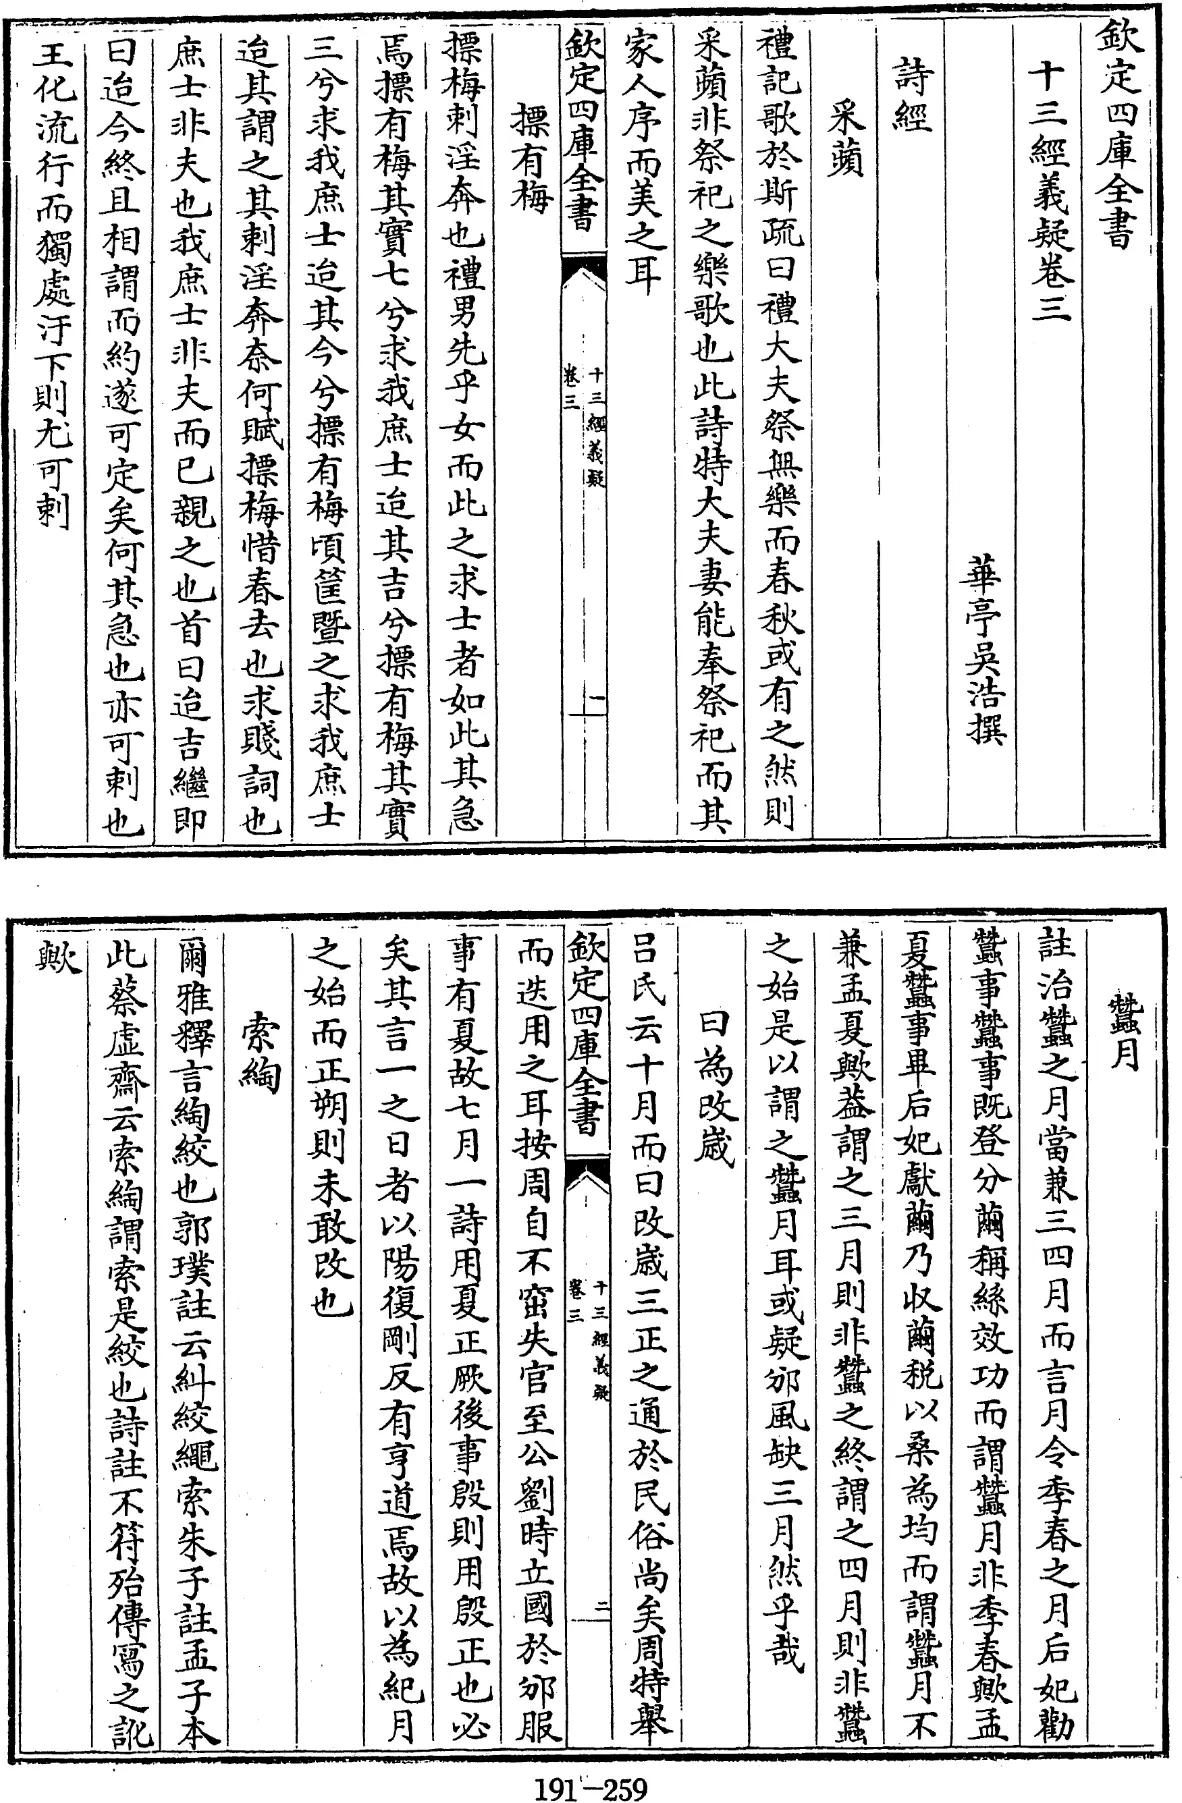 欽定四庫全書
十三經義疑卷三
華亭吳浩撰
詩經
采蘋
禮記歌於斯疏曰禮大夫祭無樂而春秋或有之然則
采蘋非祭祀之樂歌也此詩特大夫妻能奉祭祀而其
家人序而美之耳
欽定四庫全書
十三經義疑
卷三
一
摽有梅
摽梅刺淫奔也禮男先乎女而此之求士者如此其急
焉摽有梅其實七兮求我庶士迨其吉兮摽有梅其實
三兮求我庶士迨其今兮摽有梅頃筐曁之求我庶士
迨其謂之其刺淫奔奈何賦摽梅惜春去也求賤詞也
庶士非夫也我庶士非夫而已親之也首曰迨吉繼即
曰迨今終且相謂而約遂可定矣何其急也亦可刺也
王化流行而獨處汙下則尤可刺
蠶月
註治蠶之月當兼三四月而言月令季春之月后妃勸
蠶事蠶事既登分繭稱絲效功而謂蠶月非季春歟孟
夏蠶事畢后妃獻繭乃收繭税以桑為均而謂蠶月不
兼孟夏歟葢謂之三月則非蠶之終謂之四月則非蠶
之始是以謂之蠶月耳或疑邠風缺三月然乎哉
曰為改嵗
呂氏云十月而曰改嵗三正之通於民俗尚矣周特舉
欽定四庫全書
十三經義疑
卷三
二
而迭用之耳按周自不窋失官至公劉時立國於邠服
事有夏故七月一詩用夏正厥後事殷則用殷正也必
矣其言一之日者以陽復剛反有亨道焉故以為紀月
之始而正朔則未敢改也
索綯
爾雅釋言綯絞也郭璞註云糾絞繩索朱子註孟子本
此蔡虛齋云索綯謂索是絞也詩註不符殆傳寫之訛
歟
191-259